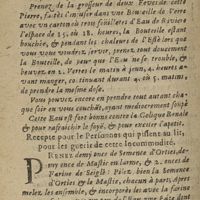 Prenez de la grosseur de deux Feves de cette
Pierre, faites l'infuser dans une Bouteille de Verre
avec un carton ou trois setiers d'Eau de Riviere
l'espace de 15, ou 18. heures, la Bouteille estant
bouchée, & pendant les chaleurs de l'Esté lors que
vous vous voulez servir, prenez tout doucement
la Bouteille, de peur que l'Eau ne se trouble, &
beuvez-en un verre le matin, 2. ou 4. heures a-
vant manger, en continuant durant 4. ou 5. matins,
de prendre la mesme dose.
Vous pouvez encore en prendre tout autant cha-
que soir en vous couchant, ayant mediocrement soupé
Cette Eau est fort bonne contre la Colique Renale
& pour rafraîchir le foye, & pour exciter l'apetit.
Recepte pour les Personnes qui pissent au lit,
pour les guerir de cette incommodité.
PRENEZ demy once de Semence d'Orties, de-
my once de Mastic en larme, & 2. onces de
Farine de Seigle: Pilez bien la Semence
d'Orties & le Mastic, chacun à part, Apres
mélez les ensemble, & incorporez les avec la farine